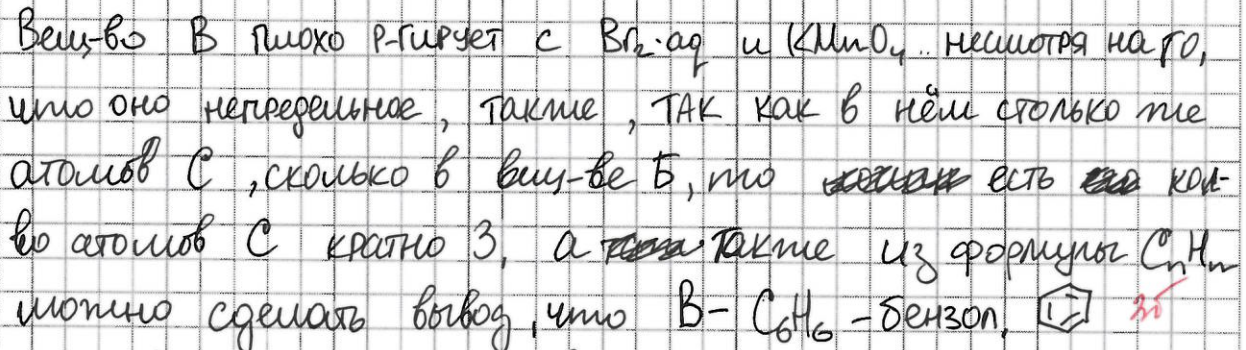 Вещ-во В плохо р-гирует с Br₂·aq и KMnO₄.. несмотря на то,
что оно непредельное, также, так как в нём столько же
атомов С, сколько в вещ-ве Б, то есть кол-
во атомов С кратно 3, а также из формулы CnHn
можно сделать вывод, что В - C₆H₆ - бензол, 3б